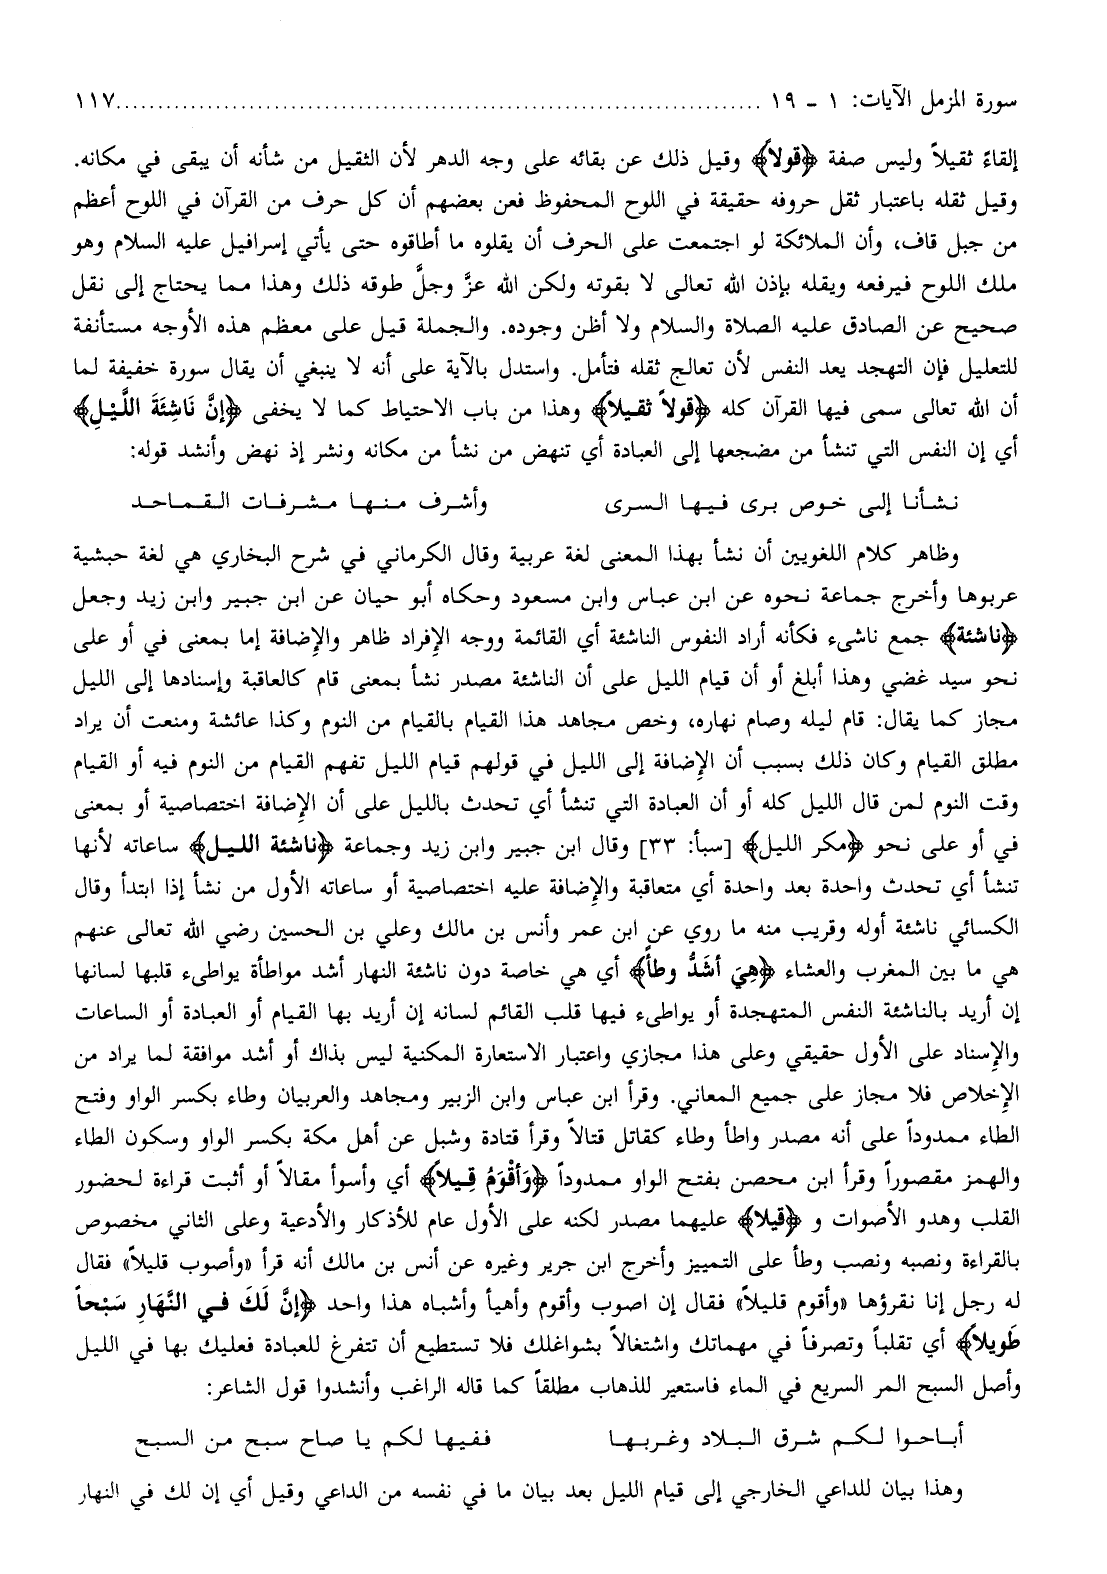 سورة المزمل الآيات: ١ - ١٩ ..................................................................................١١٧
إلقاءً ثقيلاً وليس صفة ﴿قولاً﴾ وقيل ذلك عن بقائه على وجه الدهر لأن الثقيل من شأنه أن يبقى في مكانه.
وقيل ثقله باعتبار ثقل حروفه حقيقة في اللوح المحفوظ فعن بعضهم أن كل حرف من القرآن في اللوح أعظم
من جبل قاف، وأن الملائكة لو اجتمعت على الحرف أن يقلوه ما أطاقوه حتى يأتي إسرافيل عليه السلام وهو
ملك اللوح فيرفعه ويقله بإذن الله تعالى لا بقوته ولكن الله عزَّ وجلَّ طوقه ذلك وهذا مما يحتاج إلى نقل
صحيح عن الصادق عليه الصلاة والسلام ولا أظن وجوده. والجملة قيل على معظم هذه الأوجه مستأنفة
للتعليل فإن التهجد يعد النفس لأن تعالج ثقله فتأمل. واستدل بالآية على أنه لا ينبغي أن يقال سورة خفيفة لما
أن الله تعالى سمى فيها القرآن كله ﴿قولاً ثقيلاً﴾ وهذا من باب الاحتياط كما لا يخفى ﴿إنَّ نَاشِئَةَ اللَّيْلِ﴾
أي إن النفس التي تنشأ من مضجعها إلى العبادة أي تنهض من نشأ من مكانه ونشر إذ نهض وأنشد قوله:
نشأنا إلى خوص برى فيها السرى وأشرف منها مشرفات القماحد
وظاهر كلام اللغويين أن نشأ بهذا المعنى لغة عربية وقال الكرماني في شرح البخاري هي لغة حبشية
عربوها وأخرج جماعة نحوه عن ابن عباس وابن مسعود وحكاه أبو حيان عن ابن جبير وابن زيد وجعل
﴿ناشئة﴾ جمع ناشىء فكأنه أراد النفوس الناشئة أي القائمة ووجه الإفراد ظاهر والإضافة إما بمعنى في أو على
نحو سيد غضي وهذا أبلغ أو أن قيام الليل على أن الناشئة مصدر نشأ بمعنى قام كالعاقبة وإسنادها إلى الليل
مجاز كما يقال: قام ليله وصام نهاره، وخص مجاهد هذا القيام بالقيام من النوم وكذا عائشة ومنعت أن يراد
مطلق القيام وكان ذلك بسبب أن الإضافة إلى الليل في قولهم قيام الليل تفهم القيام من النوم فيه أو القيام
وقت النوم لمن قال الليل كله أو أن العبادة التي تنشأ أي تحدث بالليل على أن الإضافة اختصاصية أو بمعنى
في أو على نحو ﴿مكر الليل﴾ [سبأ: ٣٣] وقال ابن جبير وابن زيد وجماعة ﴿ناشئة الليل﴾ ساعاته لأنها
تنشأ أي تحدث واحدة بعد واحدة أي متعاقبة والإضافة عليه اختصاصية أو ساعاته الأول من نشأ إذا ابتدأ وقال
الكسائي ناشئة أوله وقريب منه ما روي عن ابن عمر وأنس بن مالك وعلي بن الحسين رضي الله تعالى عنهم
هي ما بين المغرب والعشاء ﴿هِيَ أشَدُّ وطأً﴾ أي هي خاصة دون ناشئة النهار أشد مواطأة يواطىء قلبها لسانها
إن أريد بالناشئة النفس المتهجدة أو يواطىء فيها قلب القائم لسانه إن أريد بها القيام أو العبادة أو الساعات
والإسناد على الأول حقيقي وعلى هذا مجازي واعتبار الاستعارة المكنية ليس بذاك أو أشد موافقة لما يراد من
الإخلاص فلا مجاز على جميع المعاني. وقرأ ابن عباس وابن الزبير ومجاهد والعربيان وطاء بكسر الواو وفتح
الطاء ممدوداً على أنه مصدر واطأ وطاء كقاتل قتالاً وقرأ قتادة وشبل عن أهل مكة بكسر الواو وسكون الطاء
والهمز مقصوراً وقرأ ابن محصن بفتح الواو ممدوداً ﴿وَأقْوَمُ قِيلاً﴾ أي وأسوأ مقالاً أو أثبت قراءة لحضور
القلب وهدو الأصوات و ﴿قيلا﴾ عليهما مصدر لكنه على الأول عام للأذكار والأدعية وعلى الثاني مخصوص
بالقراءة ونصبه ونصب وطأ على التمييز وأخرج ابن جرير وغيره عن أنس بن مالك أنه قرأ «وأصوب قليلاً» فقال
له رجل إنا نقرؤها «وأقوم قليلاً» فقال إن اصوب وأقوم وأهيأ وأشباه هذا واحد ﴿إنَّ لَكَ في النَّهَارِ سَبْحاً
طَويلاً﴾ أي تقلباً وتصرفاً في مهماتك واشتغالاً بشواغلك فلا تستطيع أن تتفرغ للعبادة فعليك بها في الليل
وأصل السبح المر السريع في الماء فاستعير للذهاب مطلقاً كما قاله الراغب وأنشدوا قول الشاعر:
أباحوا لكم شرق البلاد وغربها ففيها لكم يا صاح سبح من السبح
وهذا بيان للداعي الخارجي إلى قيام الليل بعد بيان ما في نفسه من الداعي وقيل أي إن لك في النهار